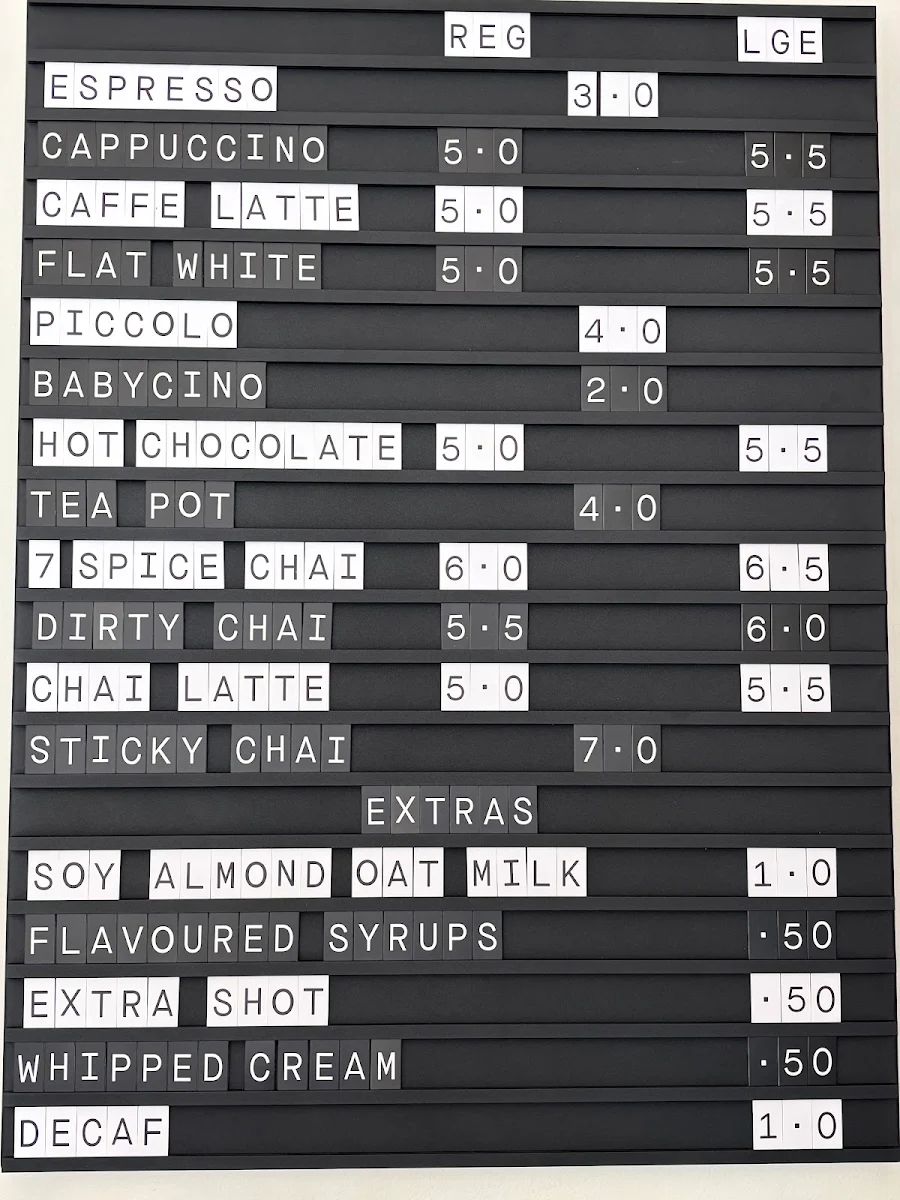 REG LGE
ESPRESSO 3·0
CAPPUCCINO 5·0 5·5
CAFFE LATTE 5·0 5·5
FLAT WHITE 5·0 5·5
PICCOLO 4·0
BABYCINO 2·0
HOT CHOCOLATE 5·0 5·5
TEA POT 4·0
7 SPICE CHAI 6·0 6·5
DIRTY CHAI 5·5 6·0
CHAI LATTE 5·0 5·5
STICKY CHAI 7·0
EXTRAS
SOY ALMOND OAT MILK 1·0
FLAVOURED SYRUPS ·50
EXTRA SHOT ·50
WHIPPED CREAM ·50
DECAF 1·0